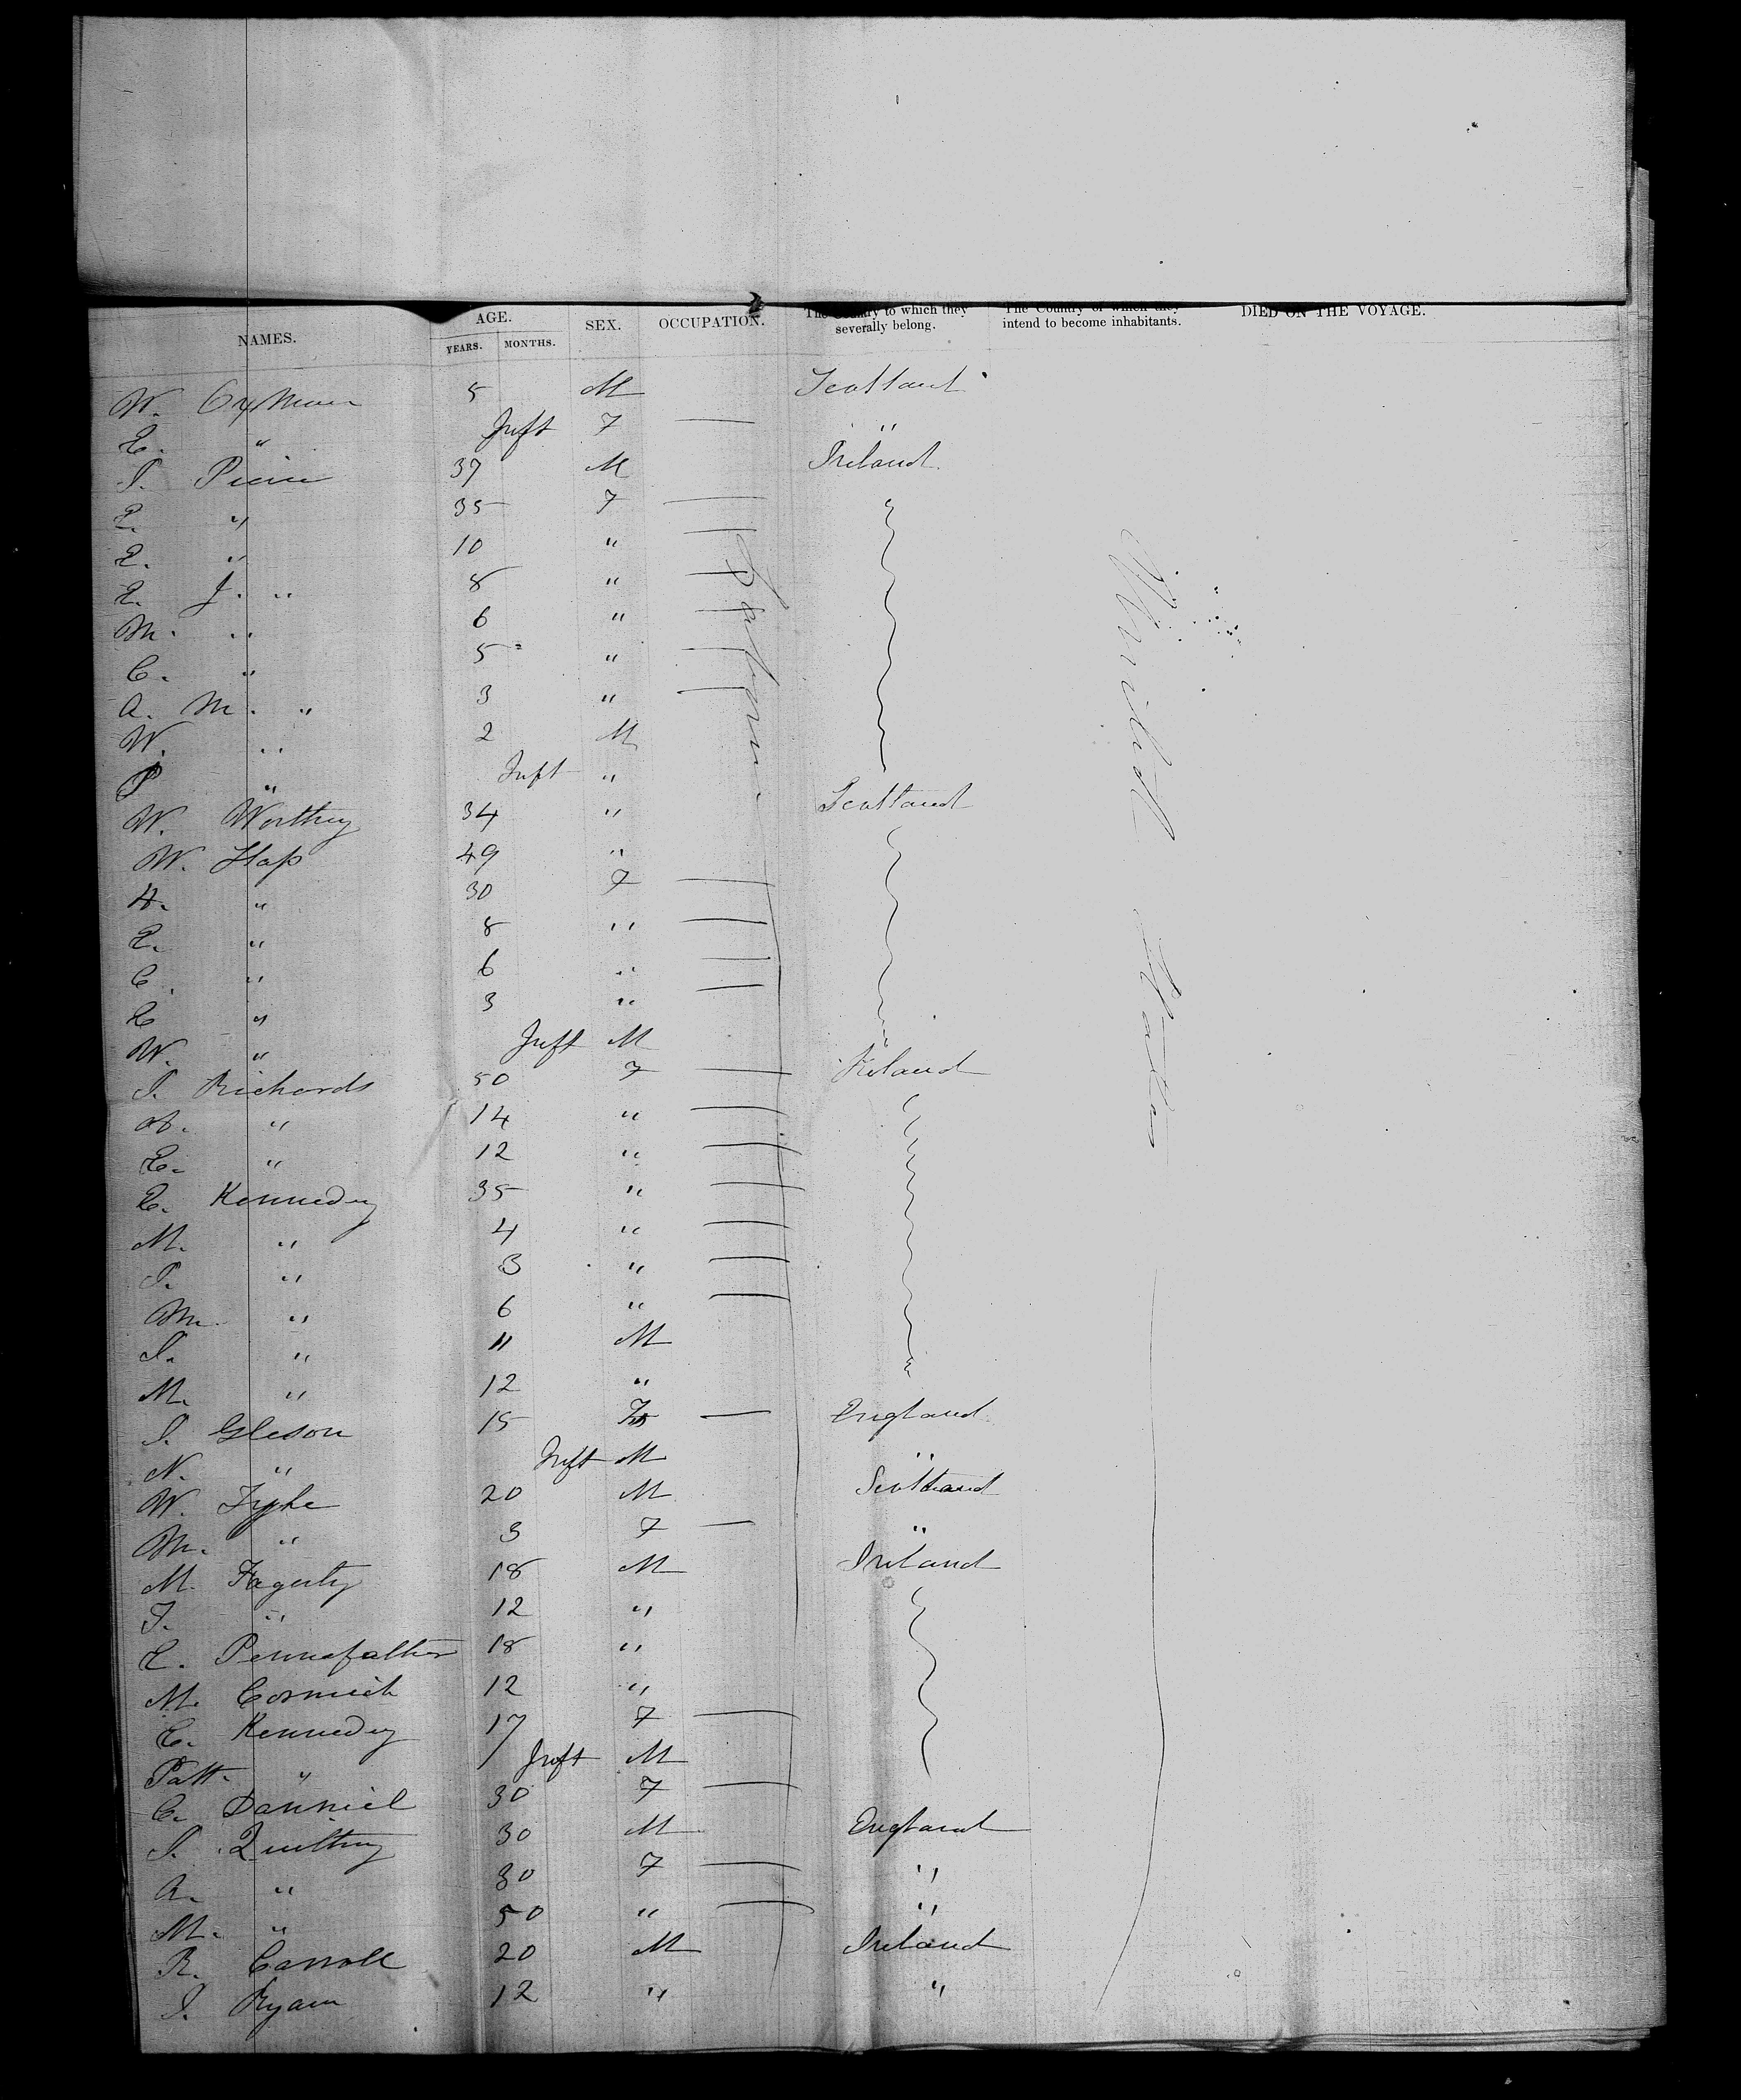 NAMES. AGE. YEARS. MONTHS. SEX. OCCUPATION. The Country to which they severally belong. The Country of which they intend to become inhabitants. DIED ON THE VOYAGE.
W. 5 M Scotland
E. " Inft F — "
P. 37 M Ireland
E. " 35 F —
E. " 10 " —
E. J. " 8 " —
M. " 6 " —
C. " 5 " —
A. M. " 3 " —
W. " 2 M
P " Inft "
W. Worthey 34 " Scotland
W. 49 "
A. " 30 F —
E. " 8 " —
C. " 6 " —
E " 3 " —
W. " Inft M
S. Richards 50 F — Ireland
" 14 " —
E. " 12 " —
E. Kennedy 35 " —
M. " 4 " —
S. " 3 " —
M. " 6 " —
S. " 11 M
M. " 12 "
S. Gleson 15 F — England
N. " Inft M "
W. Fyphe 20 M Scotland
M. " 3 F — "
M. Fagerty 18 M Ireland
T. " 12 "
E. Pennefather 18 "
M. Cormick 12 "
E. Kennedy 17 F —
Patt. " Inft M
C. Danniel 30 F —
S. Quilthy 30 M England
A. " 30 F — "
M. " 50 " — "
R. Carroll 20 M Ireland
J. Ryam 12 " "
United States